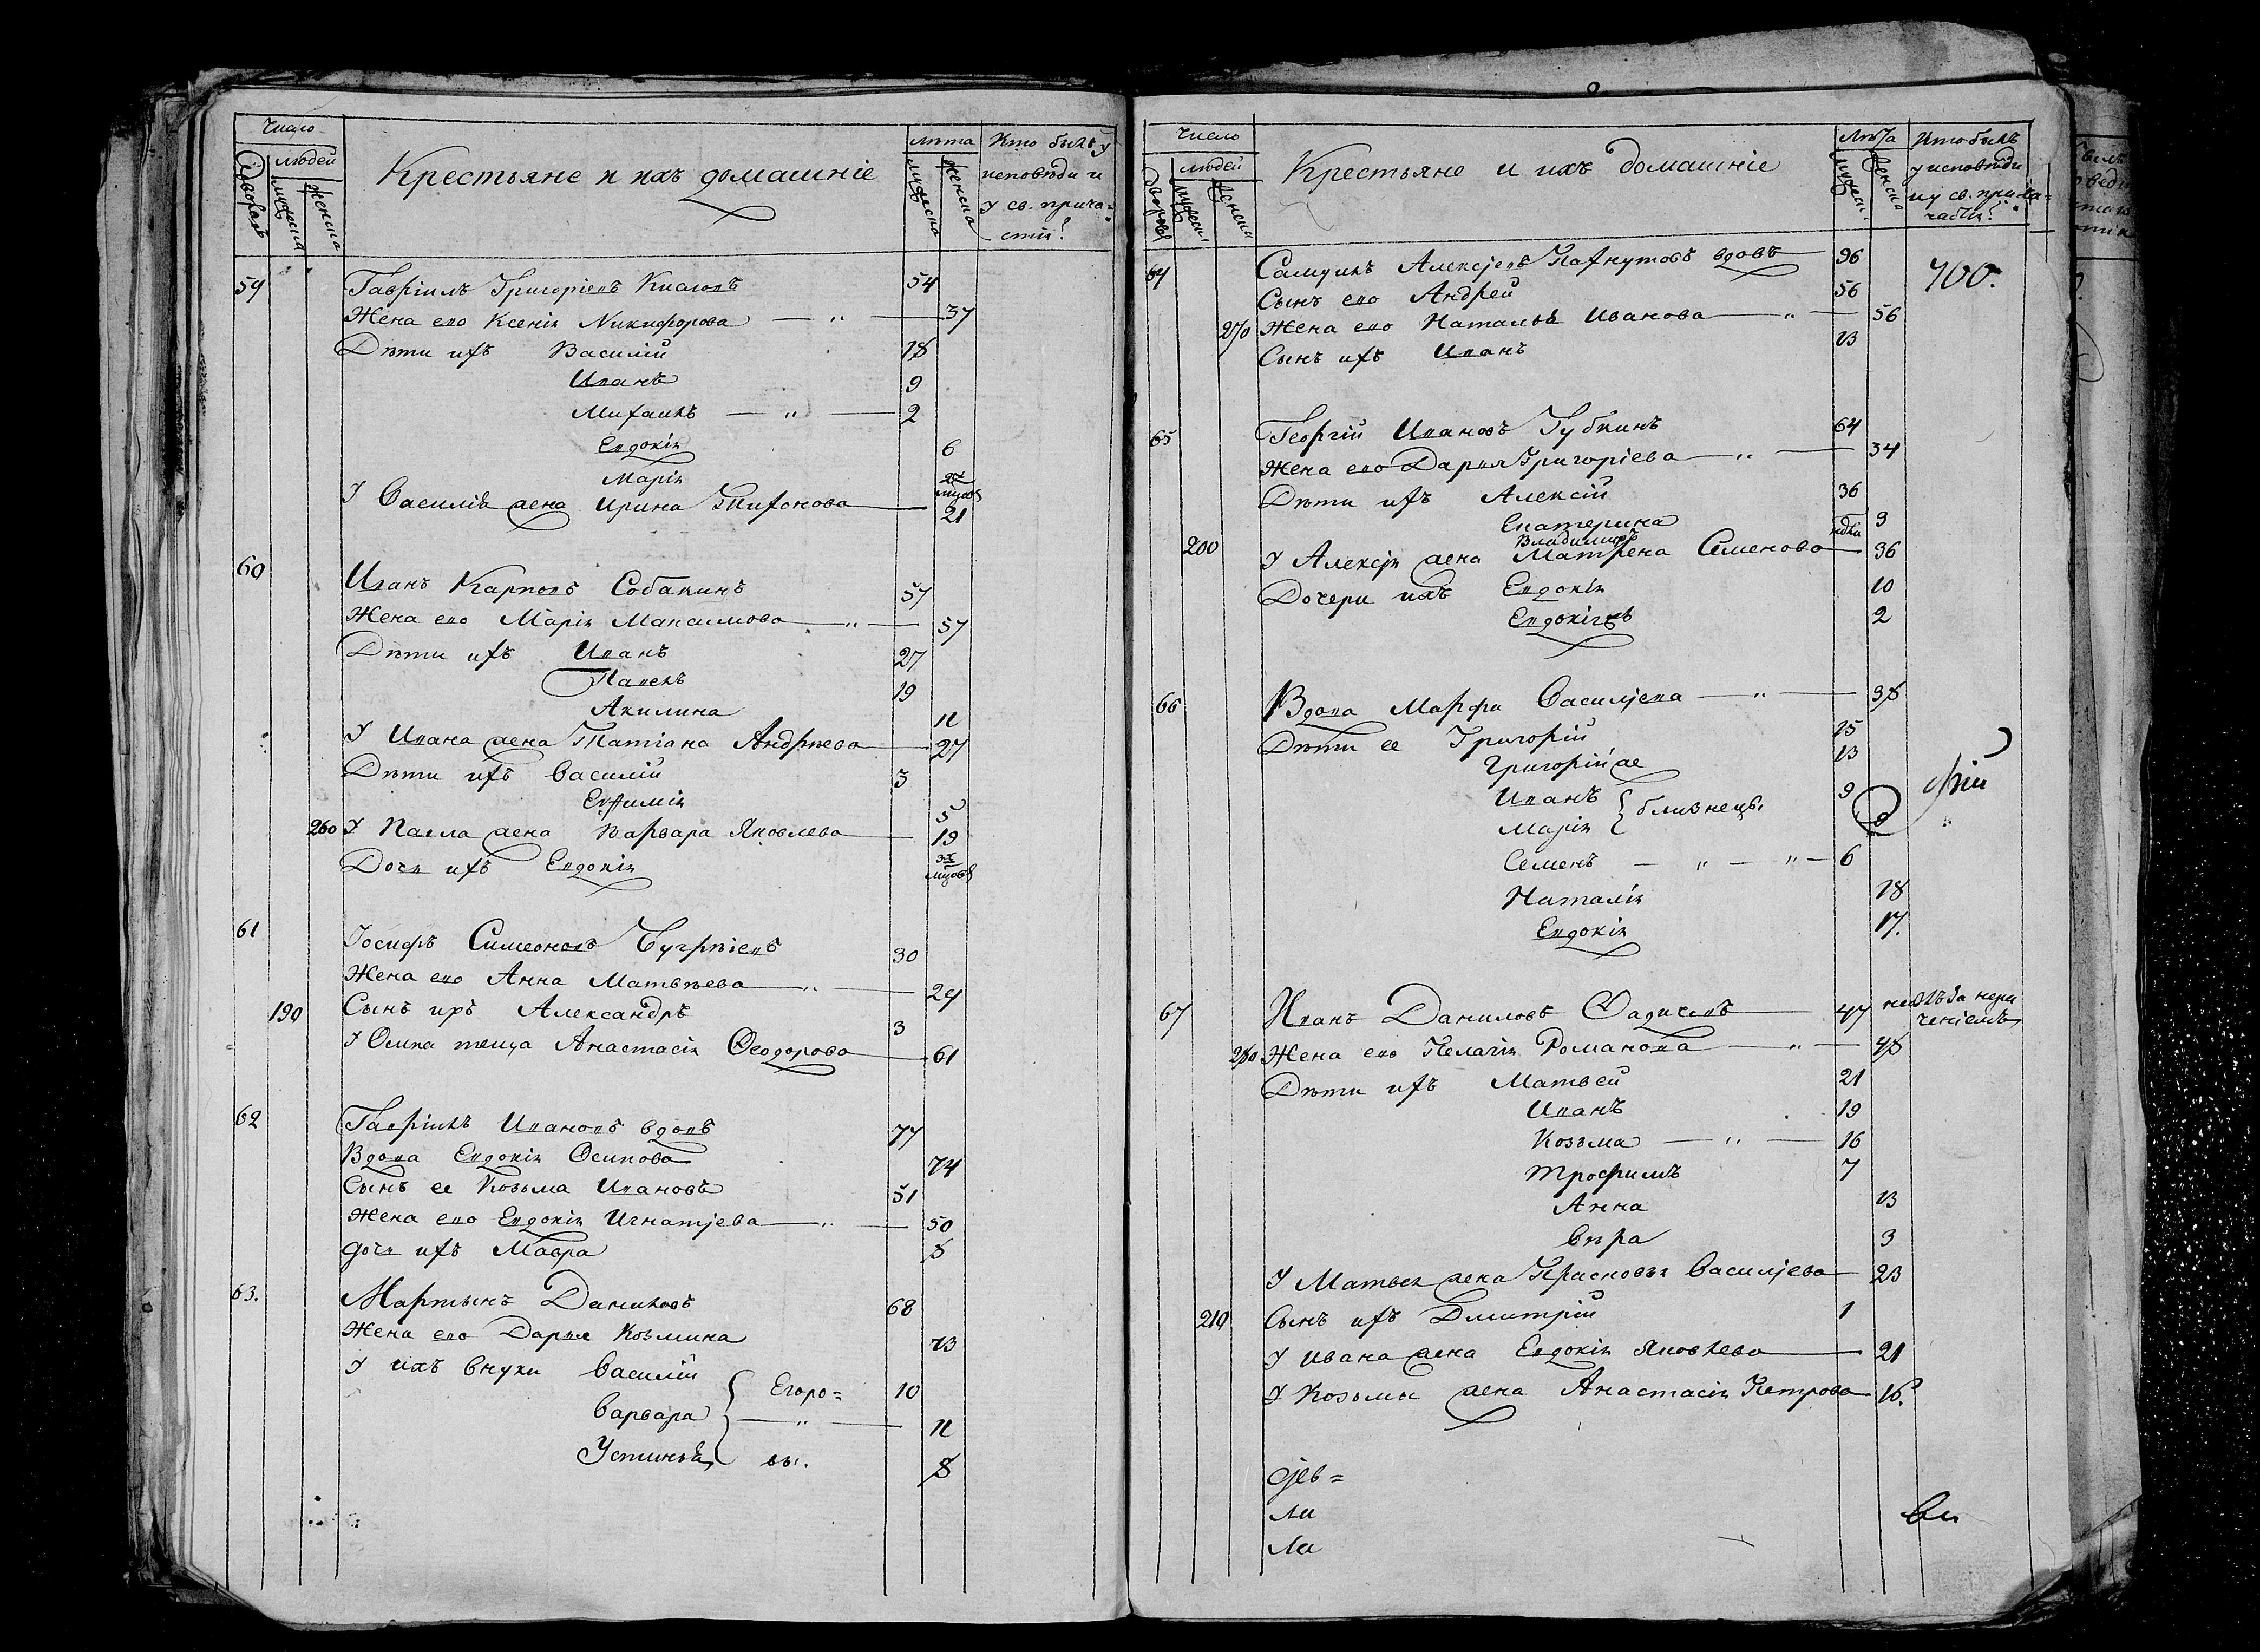 Число
людей
Дворовъ
мужеска
женска
Крестьяне и ихъ домашніе
лѣта
мужеска
женска
Кто былъ у
исповѣди и
у св. прича=
стія?
59 Гавріилъ Григоріевъ 54
Жена его Ксенія Никифорова — „ — 37
Дѣти ихъ Василій 18
Иванъ 9
Михаилъ — „ — 2
Евдокія 6
Марія
У Василія жена Ирина Тихонова — 21
60 Иванъ Карповъ Собакинъ 57
Жена его Марія Максимова — „ — 57
Дѣти ихъ Иванъ 27
Павелъ 19
Акилина 11
У Ивана жена Татіана Андрѣева — 27
Дѣти ихъ Василій 3
Евфимія 5
260 У Павла жена Варвара Яковлева — 19
Дочь ихъ Евдокія
61 Іосифъ Симеоновъ 30
Жена его Анна Матвѣева — „ — 24
190 Сынъ ихъ Александръ 3
У Осипа теща Анастасія Ѳеодорова — 61
62 Гавріилъ Ивановъ вдовъ 77
Вдова Евдокія Осипова 74
Сынъ ее Козьма Ивановъ 51
Жена его Евдокія Игнатьева — „ — 50
Дочь ихъ Мавра 8
63. Мартынъ Даниловъ 68
Жена его Дарья Козмина 73
У ихъ внуки Василій Егоро= 10
Варвара — „ — 11
Устинья вы. 8
Число
людей
Дворовъ
мужеск.
женска
Крестьяне и ихъ домашніе
Лѣта
мужеск.
женска
Кто былъ
у исповѣди
и у св. прича=
частія?
64 Самуилъ Алексѣевъ Пафнутовъ вдовъ 96
Сынъ его Андрей 56
270 Жена его Наталья Иванова — „ — 56
Сынъ ихъ Иванъ 13
65 Георгій Ивановъ Губкинъ 64
Жена его Дарья Григоріева — „ — 34
Дѣти ихъ Алексій 36
Екатерина 9
Владимиръ
200 У Алексѣя жена Матрена Семенова — 36
Дочери ихъ Евдокія 10
Евдокія 2
66 Вдова Марфа Васильева — „ — 38
Дѣти ее Григорій 15
Григорій же 13
Иванъ близнецы 9
Марія
Семенъ — „ — „ — 6
Наталія 18
Евдокія 17.
67 Иванъ Даниловъ — 47
280 Жена его Пелагія Романова — „ — 48
Дѣти ихъ Матвей 21
Иванъ 19
Козьма — „ — 16
Трофимъ 7
Анна 13
Вѣра 3
У Матвея жена Васильева — 23
210 Сынъ ихъ Дмитрій 1
У Ивана жена Евдокія Яковлева — 21
У Козьмы жена Анастасія Петрова — 16.